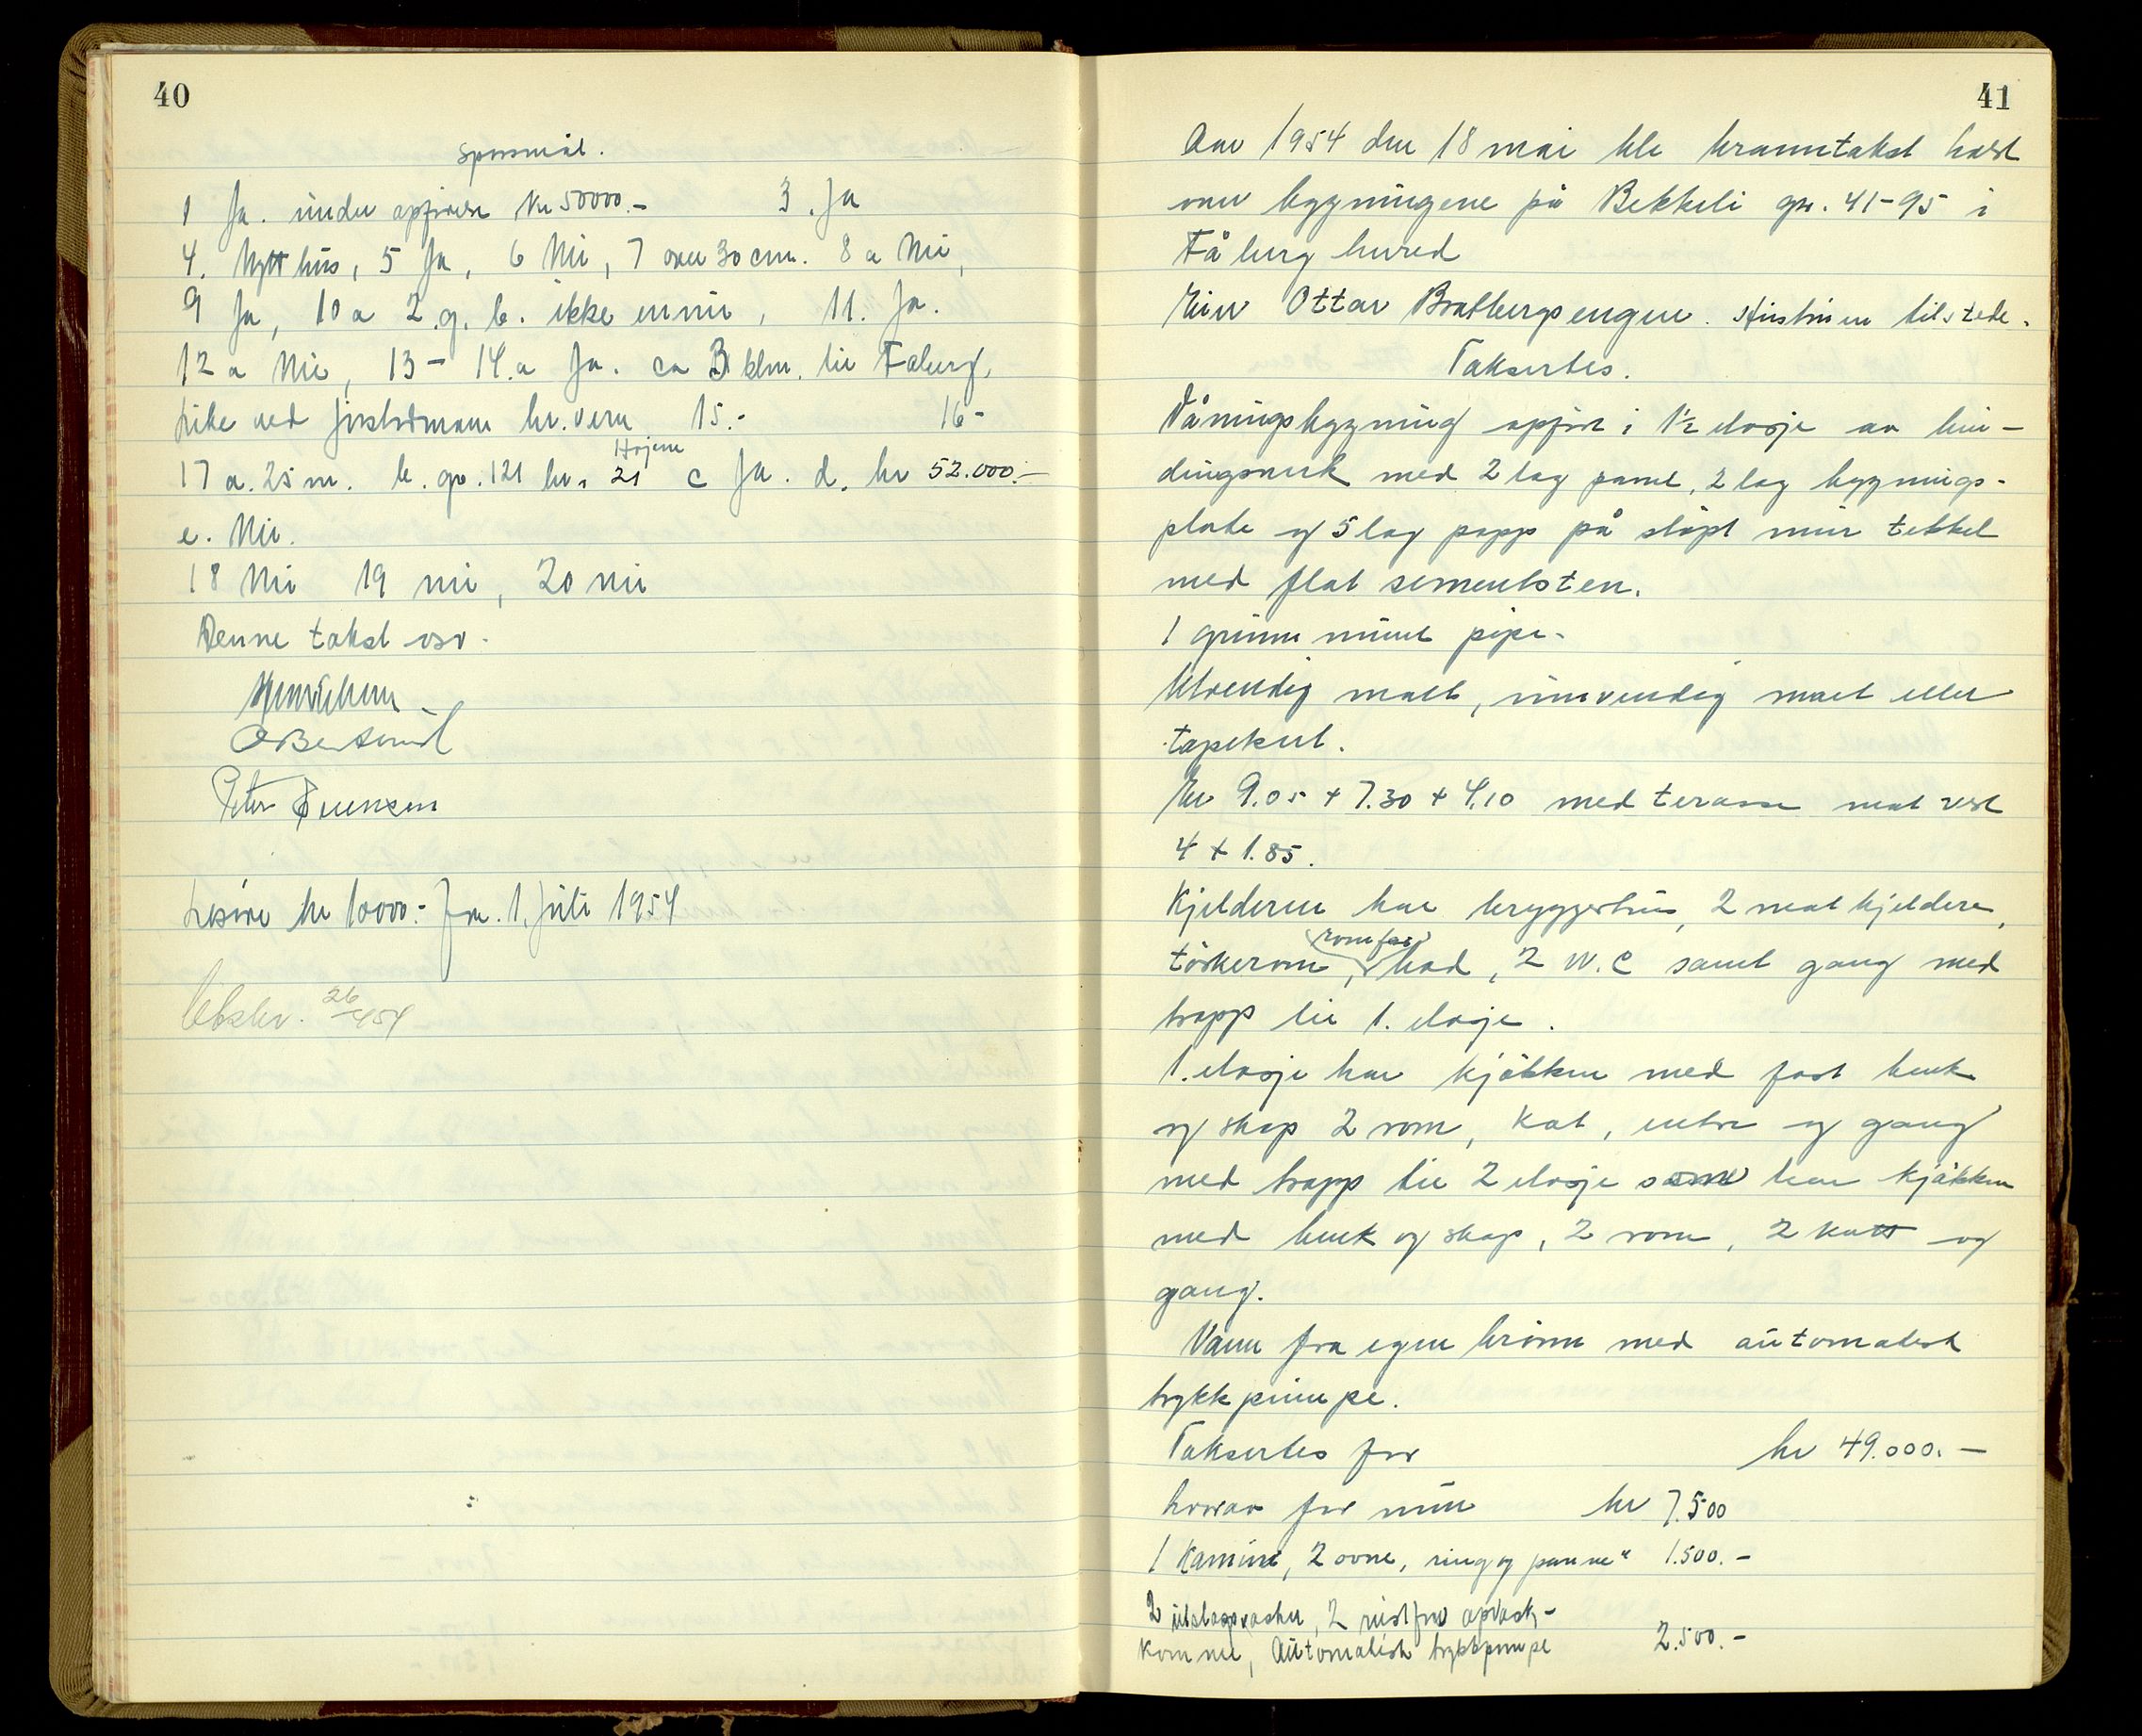 40
Spørsmål.
1 Ja. under opførelse Kr 50000.- 3. Ja
4. Nytt hus, 5 Ja, 6 Nei, 7 over 30 cm. 8 a Nei,
9 Ja, 10 a 2. g. b. ikke ennu, 11. Ja.
12 a Nei, 13 - 14.a Ja. ca 3 klm. til Fåberg.
Like ved br. vern 15.- 16-
17 a. 25 m. b. gr. 121 br. 21 c Ja. d. kr 52.000.-
Højere
e. Nei.
18 Nei 19 nei, 20 nei
Denne takst osv.
Peter Svensen
Løsøre kr 10000.- fra 1. Juli 1954
Utskr. 26/5 54
41
Aar 1954 den 18 mai ble branntakst holdt
over bygningene på Bekkeli gr. 41-95 i
Fåberg herred
Eier Ottar Bratbergsengen. Hustruen tilstede.
Taksertes.
Våningsbygning opført i 1½ etasje av bin-
dingsverk med 2 lag panel, 2 lag bygnings-
plate og 5 lag papp på støpt mur tekket
med flat sementsten.
1 grunn muret pipe.
Utvendig malt, innvendig malt eller
tapetsert.
Er 9.05 + 7.30 + 4.10 med terasse mot vest
4 + 1.85.
Kjelderen har bryggerhus, 2 matkjeldere,
rom for
tørkerom, bad, 2 W.C samt gang med
trapp til 1. etasje.
1. etasje har kjøkken med fast benk
og skap 2 rom, kot, entre og gang
med trapp til 2 etasje som har kjøkken
med benk og skap, 2 rom, 2 kott og
gang.
Vann fra egen brønn med automatisk
trykkpumpe.
Taksertes for kr 49.000.-
hvorav for mur kr 7.500
1 Kamin, 2 ovne, ring og panne " 1.500.-
2 utslagsvasker, 2 rustfrie opvask-
kommer, Automatisk trykkpumpe 2.500.-